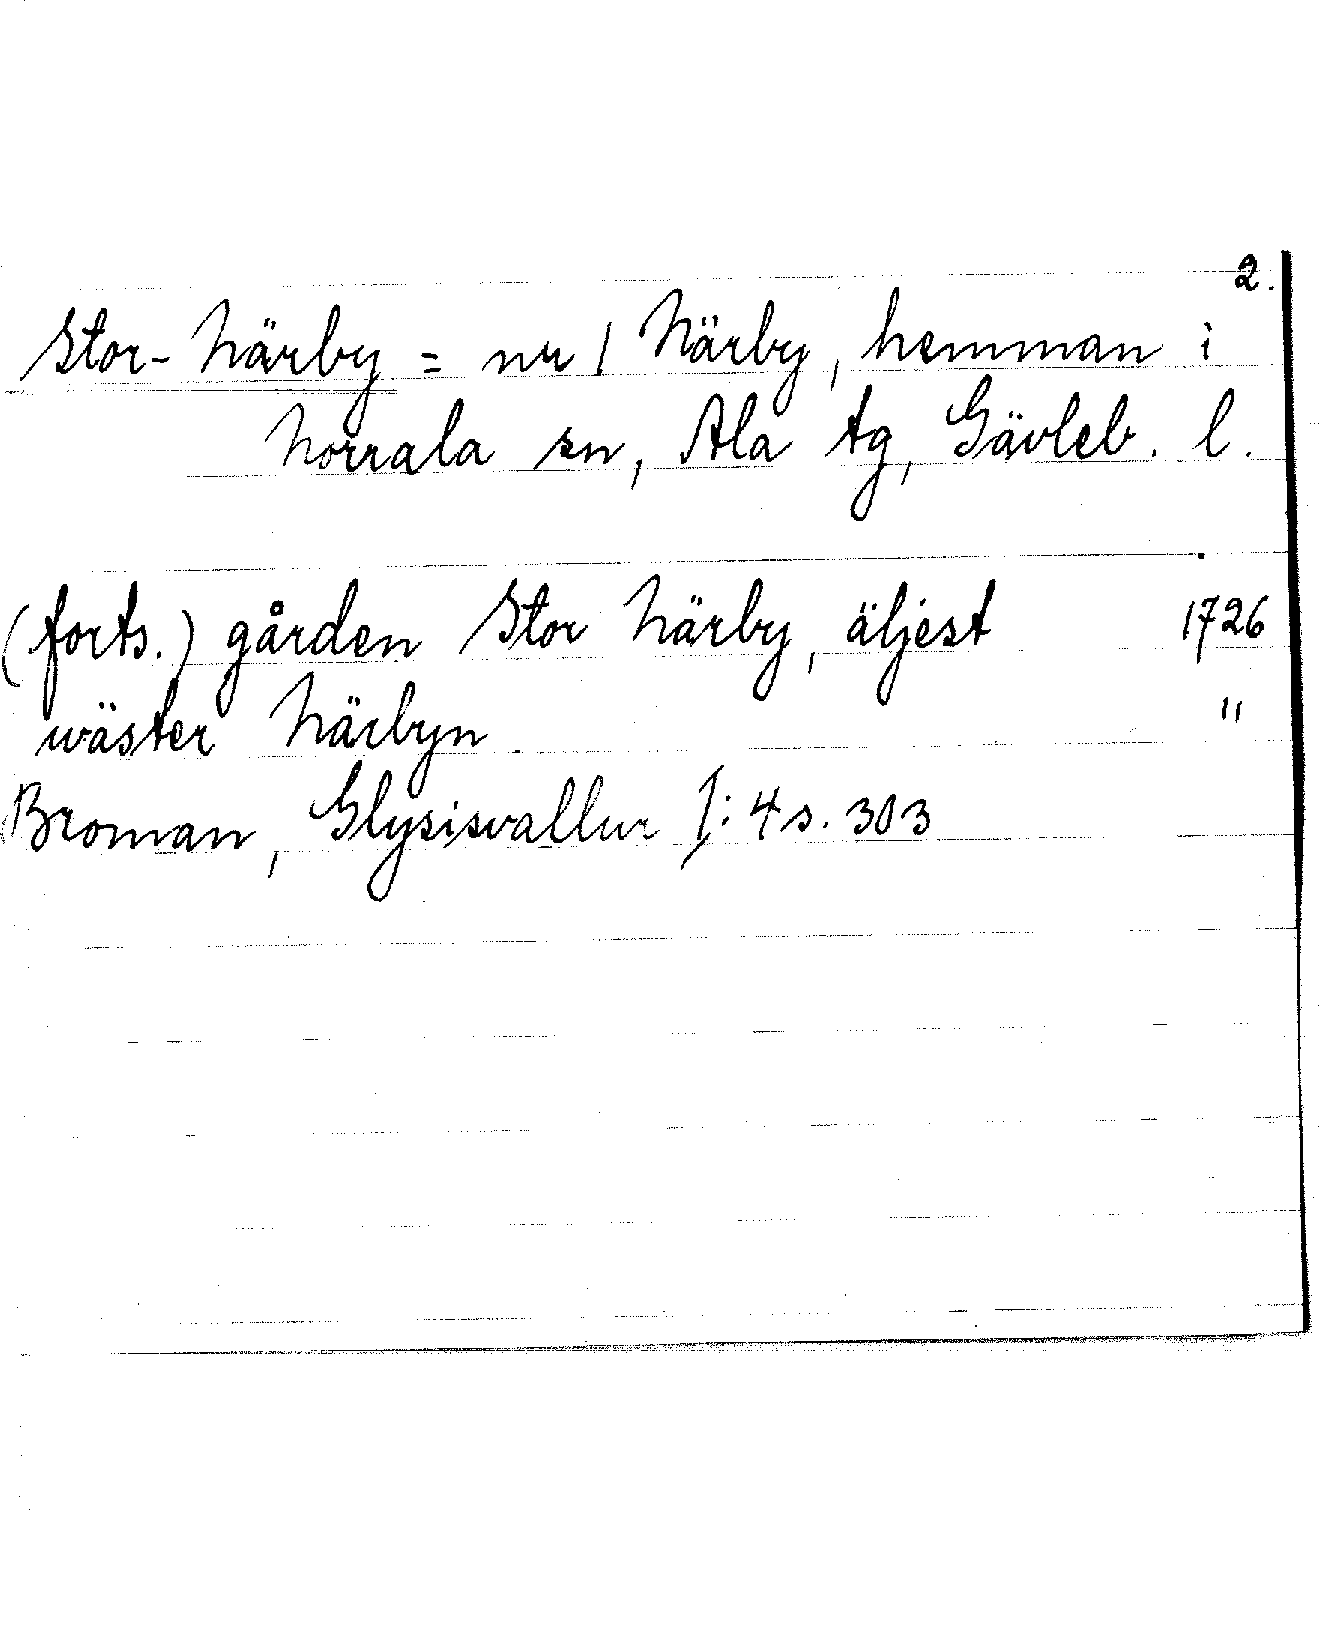 2.
Stor-Närby = nr 1 Närby, hemman i
Norrala sn, Ala tg, Gävleb. l.
(forts.) gården Stor Närby, äljest 1726
wäster Närbyn "
Broman, Glysisvallur I:4 s. 303